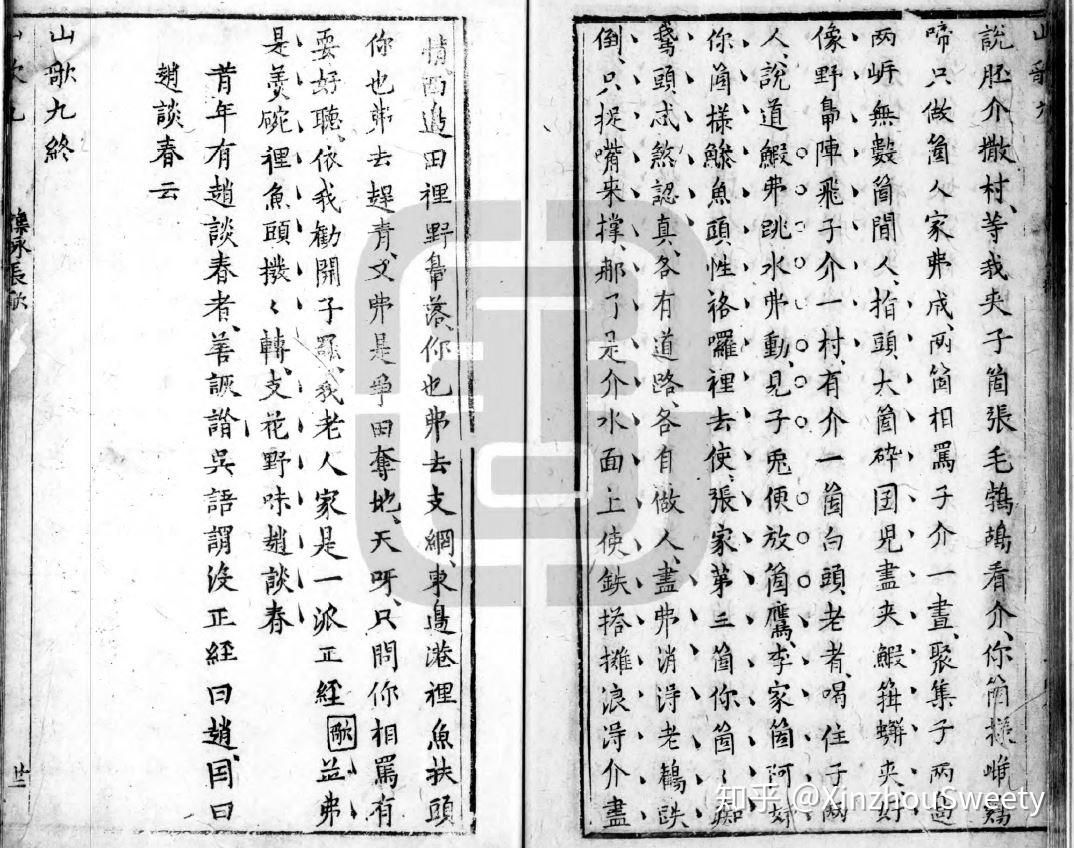 山歌九
說胚介撒村、等我夾子箇張毛鵓鴣看介、你箇樣雌
啼只做箇人家弗成、兩箇相罵子介一晝、聚集子兩邊
兩岍無數箇閒人、指頭大箇碎囝兒盡夾鰕夾好
像野鳧陣飛子介一村、有介一箇白頭老者、喝住子兩
人、說道鰕弗跳水弗動、見子兎便放箇鷹、李家箇阿好
你箇樣魚頭性格囉裡去使、張家第三箇你箇〻痴
鵞頭忒煞認真、各有道路、各自做人、盡弗消淂老鶴跌
倒、只捉嘴來撑、那了是介水面上使鉄搭攤浪淂介盡
情、西邊田裡野鳧落、你也弗去支網、東邊港裡魚扶頭
你也弗去趕青、又弗是爭田奪地、天呀、只問你相罵有
耍好聽、依我勸開子罷、我老人家是一派正經歌益弗
是羮碗裡魚頭撥〻轉、支花野味趙談春
昔年有趙談春者、善詼諧、吳語謂沒正經曰趙、因曰
趙談春云
山歌九終
山歌九 襍咏長歌 廿二
知乎 @XinzhouSweety